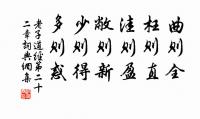 曲则全
枉则直
洼则盈
敝则新
少则得
多则惑
老子道經第二十
二章詞典網集